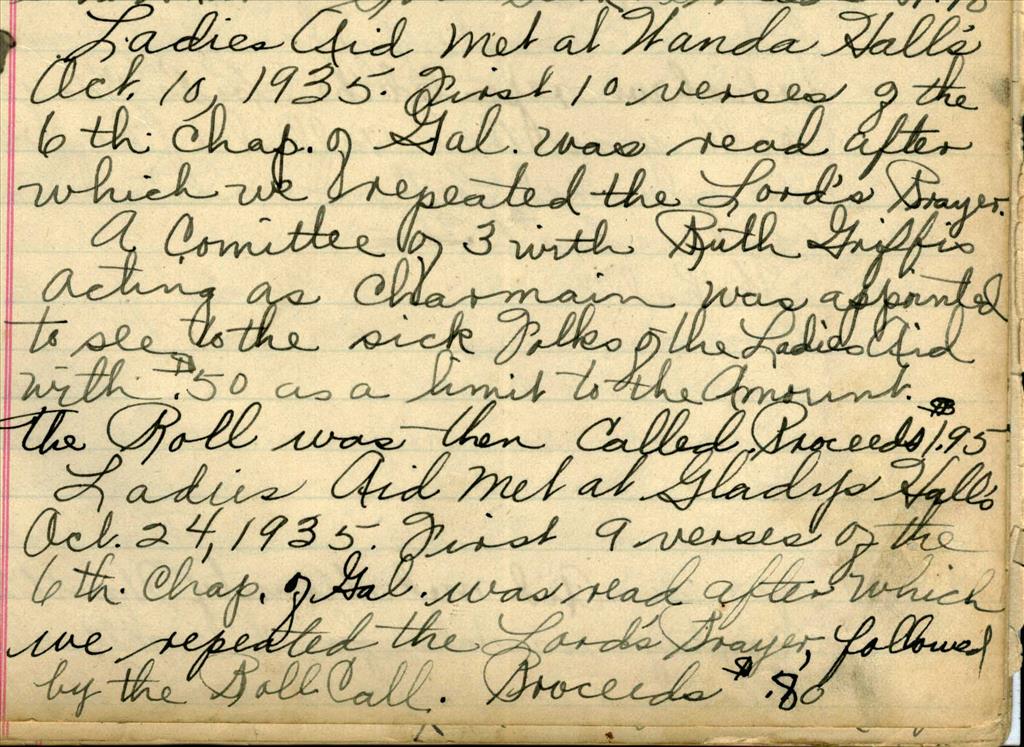 Ladies Aid met at Wanda Hall's
Oct. 10, 1935. First 10 verses of the
6 th. Chap. of Gal. was read after
which we repeated the Lord's Prayer.
A Comittee of 3 with Ruth Griffis
acting as Charmain was appointed
to see to the sick Folks of the Ladies Aid
with $.50 as a limit to the Amount.
the Roll was then Called. Proceeds $1.95
Ladies Aid met at Gladys Hall's
Oct. 24, 1935. First 9 verses of the
6 th. Chap. of Gal. was read after which
we repeated the Lord's Prayer, followed
by the Roll Call. Proceeds $.80